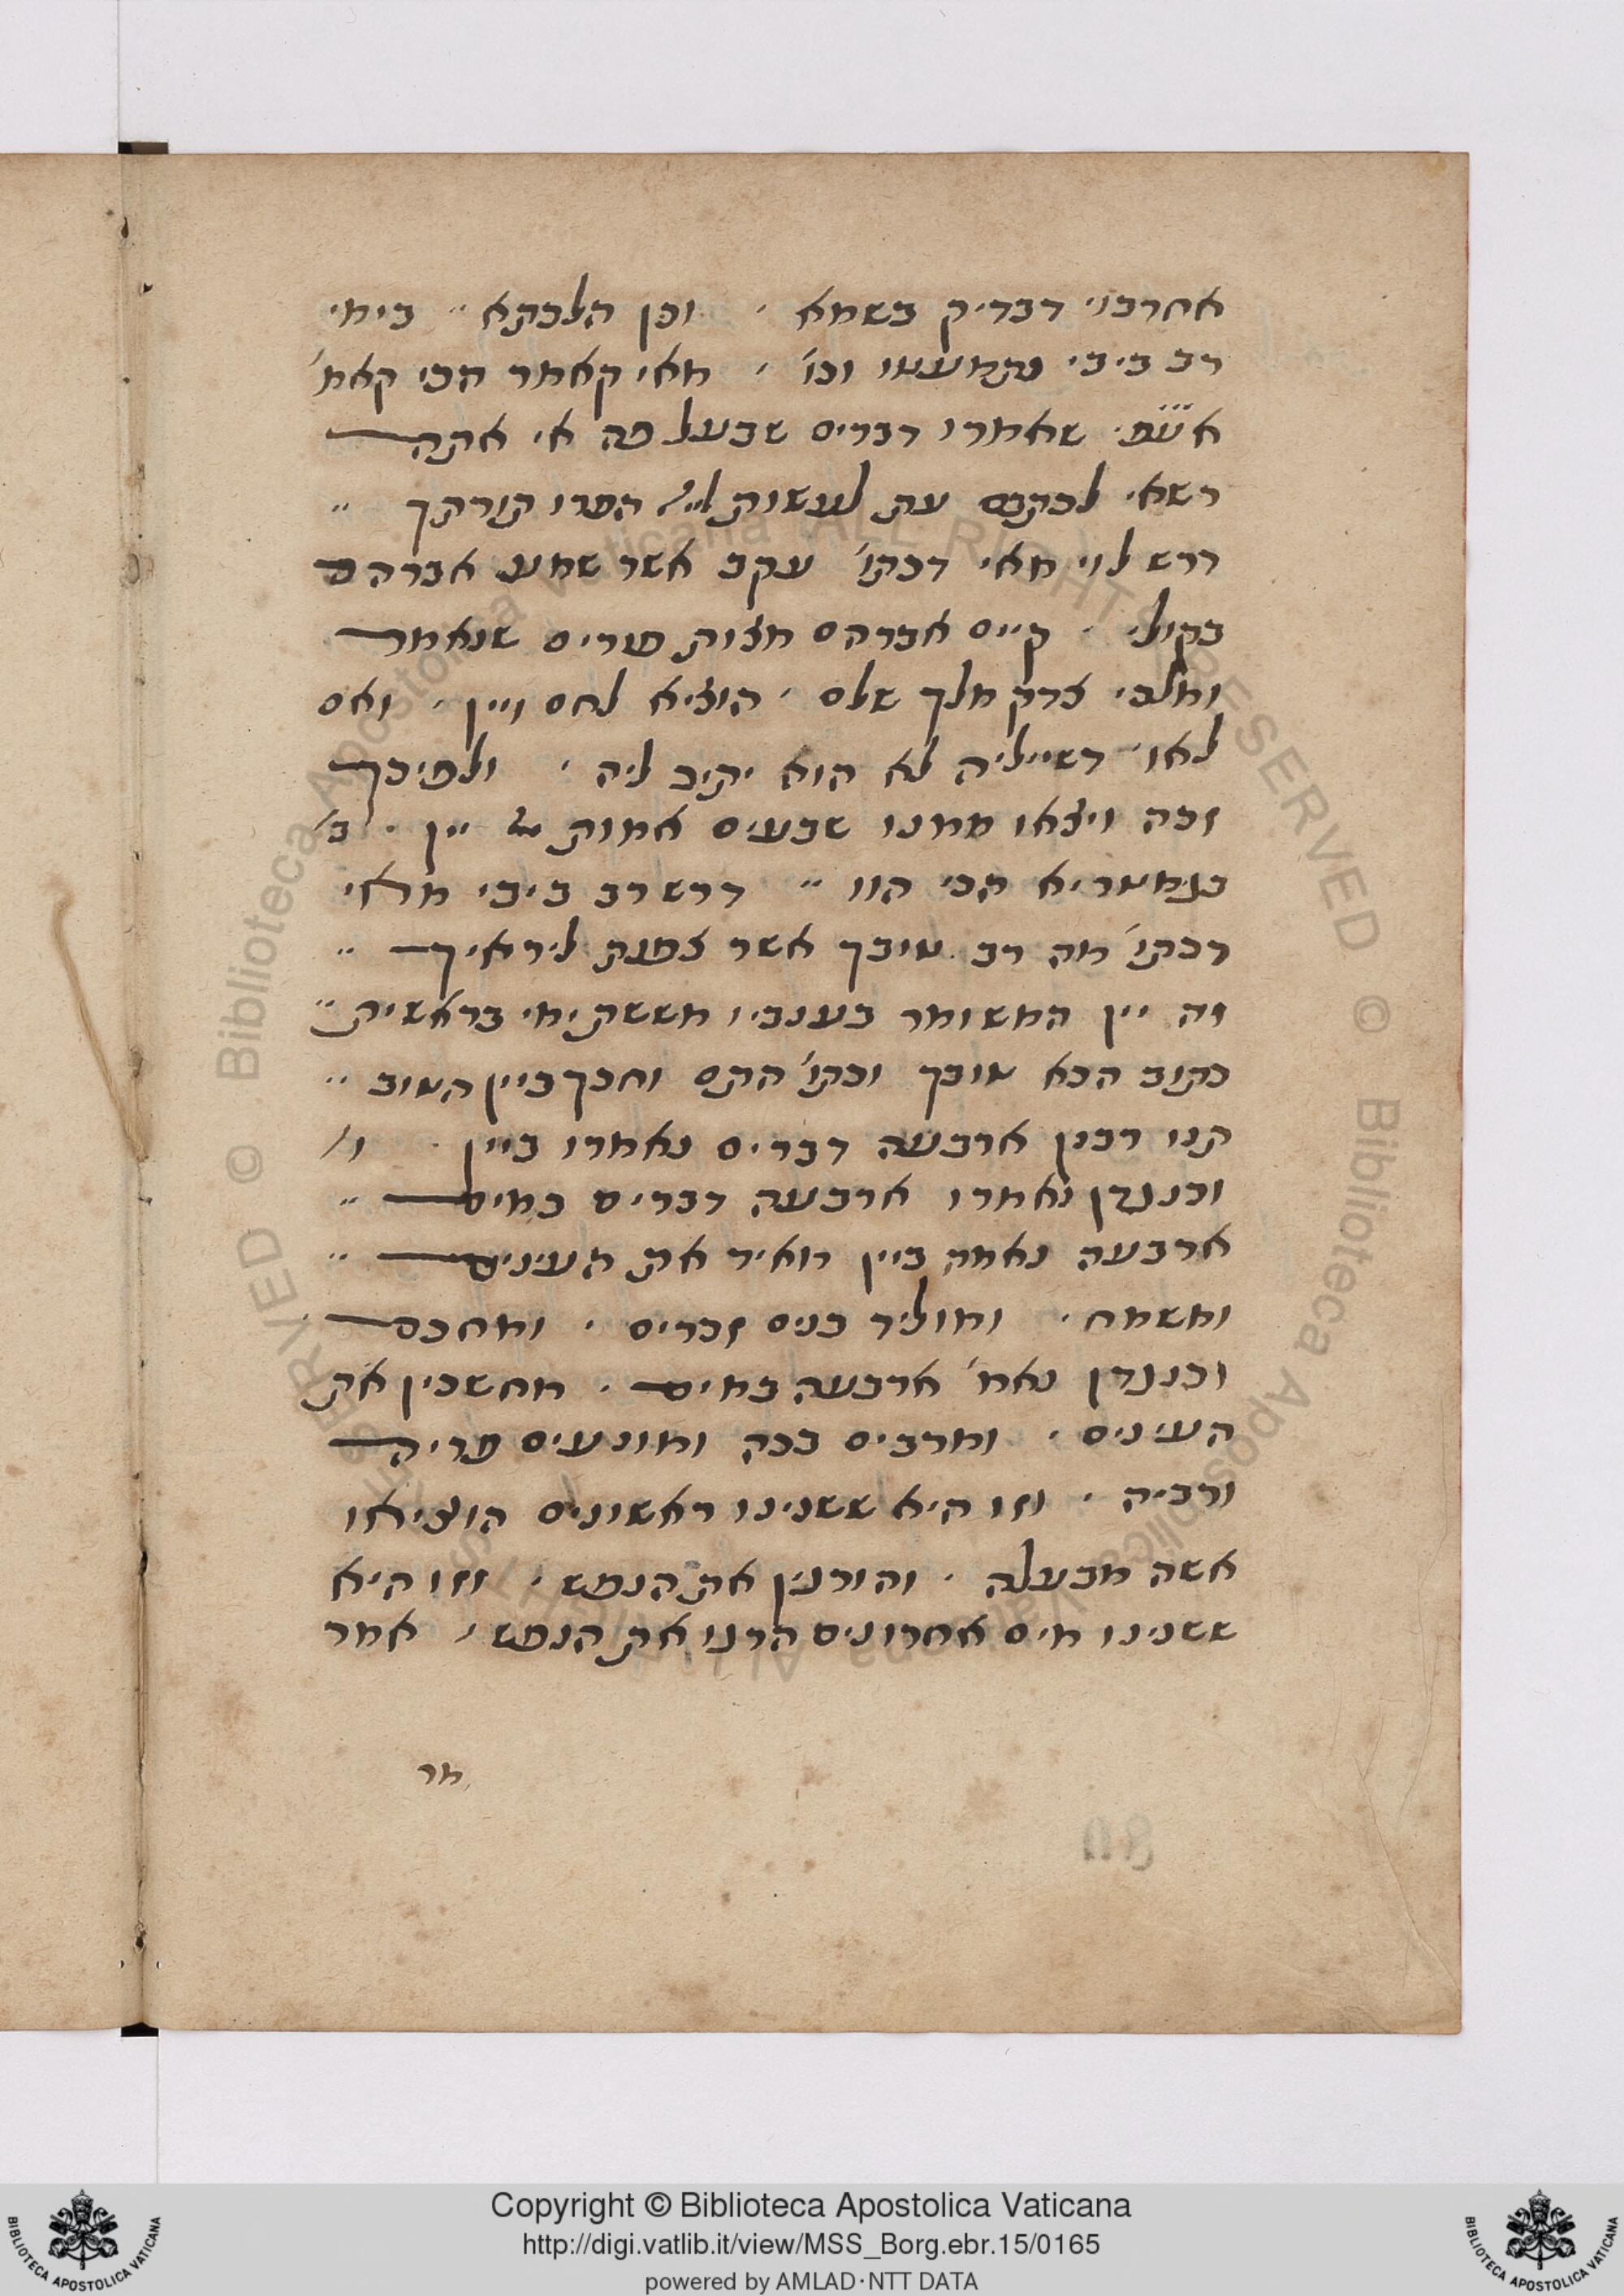 אחרבוי דבדיק בשמא · וכן הלכתא ·· בימי
רב ביבי נתמעטו וכו׳ · מאי קאמר הכי קאמ׳
אע״פ שאמרו דברים שבעל פה אי אתה
רשאי לכתבם עת לעשות ליי׳ הפרו תורתך ··
דרש לוי מאי דכתי׳ עקב אשר שמע אברהם
בקולי · קיים אברהם מצות פורים שנאמר
ומלכי צדק מלך שלם · הוציא לחם ויין · ואם
לאו דשייליה לא הוא יהיב ליה · ולפיכך
זכה ויצאו ממנו שבעים אמות של יין · כ׳
בגמטריא הכי הוו ·· דרש רב ביבי מאי
דכתי׳ מה רב טובך אשר צפנת ליראיך ··
זה יין המשומר בענביו מששת ימי בראשית ··
כתוב הכא טובך וכתי׳ התם וחכך כיין הטוב ··
תנו רבנן ארבעה דברים נאמרו ביין · ו׳
וכנגדן נאמרו ארבעה דברים במים ··
ארבעה נאמרו ביין מאיר את העינים ··
ומשמח · ומוליד בנים זכרים · ומחכם ·
וכנגדן נאמ׳ ארבעה במים · מחשכין את
העינים · ומרבים בכה ומונעים פריה
ורביה · וזו היא ששנינו ראשונים הוציאו
אשה מבעלה · והורגין את הנפש · וזו היא
ששנינו מים אחרונים הרגו את הנפש · אמר
מר
Copyright © Biblioteca Apostolica Vaticana
http://digi.vatlib.it/view/MSS_Borg.ebr.15/0165
powered by AMLAD·NTT DATA